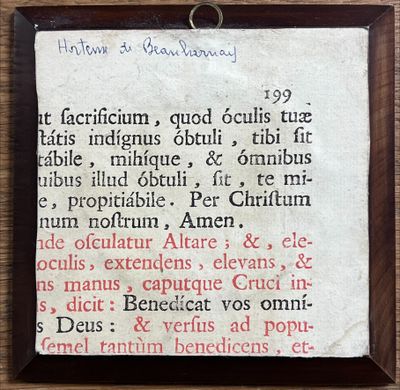 Hortense de Beauharnay
199
ut ſacrificium, quod óculis tuæ
ſtátis indígnus óbtuli, tibi ſit
tábile, mihíque, & ómnibus
uibus illud óbtuli, ſit, te mi-
e, propitiábile. Per Chriſtum
num noſtrum, Amen.
nde oſculatur Altare; &, ele-
oculis, extendens, elevans, &
ns manus, caputque Cruci in-
s, dicit: Benedícat vos omní-
s Deus: & verſus ad popu-
ſemel tantùm benedicens, et-